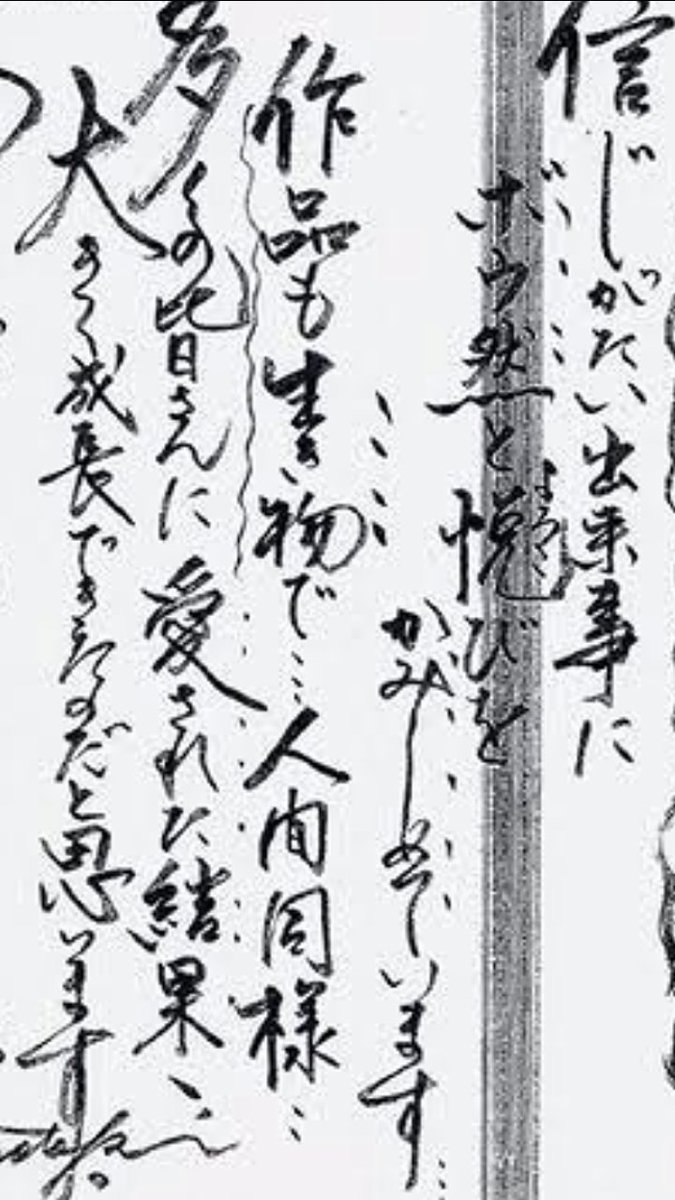 信じがたい出来事に
ボウ然と悦びを
かみしめています…
作品も生き物で…人間同様…
多くの皆さんに愛された結果…
大きく成長できたのだと思います